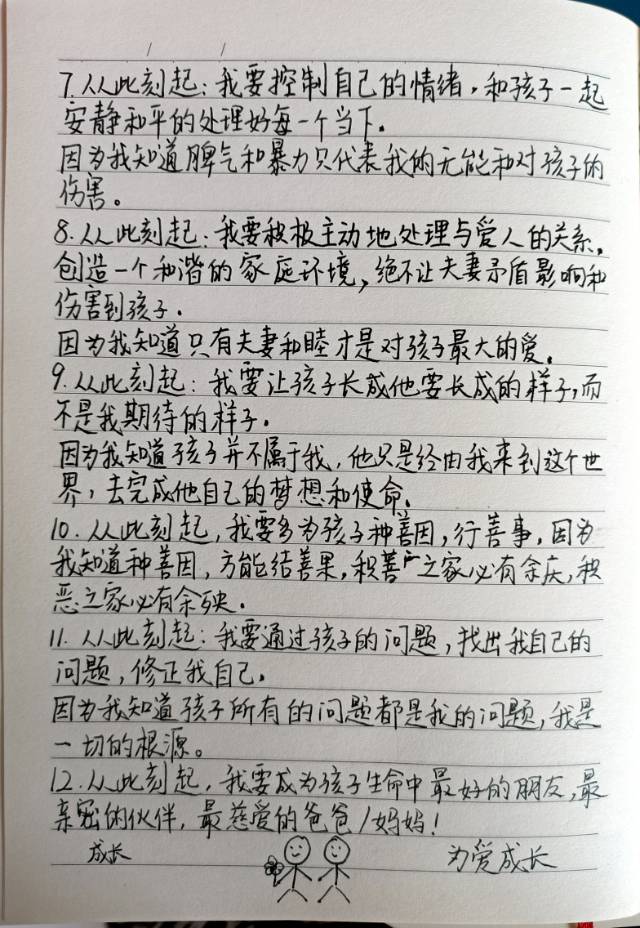 7.从此刻起：我要控制自己的情绪，和孩子一起
安静和平的处理好每一个当下。
因为我知道脾气和暴力只代表我的无能和对孩子的
伤害。
8.从此刻起：我要积极主动地处理与爱人的关系。
创造一个和谐的家庭环境，绝不让夫妻矛盾影响和
伤害到孩子。
因为我知道只有夫妻和睦才是对孩子最大的爱。
9.从此刻起：我要让孩子长成他要长成的样子，而
不是我期待的样子。
因为我知道孩子并不属于我，他只是经由我来到这个世
界，去完成他自己的梦想和使命。
10.从此刻起，我要多为孩子种善因，行善事，因为
我知道种善因，方能结善果，积善之家必有余庆，积
恶之家必有余殃。
11.从此刻起：我要通过孩子的问题，找出我自己的
问题，修正我自己。
因为我知道孩子所有的问题都是我的问题，我是
一切的根源。
12.从此刻起，我要成为孩子生命中最好的朋友，最
亲密的伙伴，最慈爱的爸爸/妈妈！
成长 为爱成长